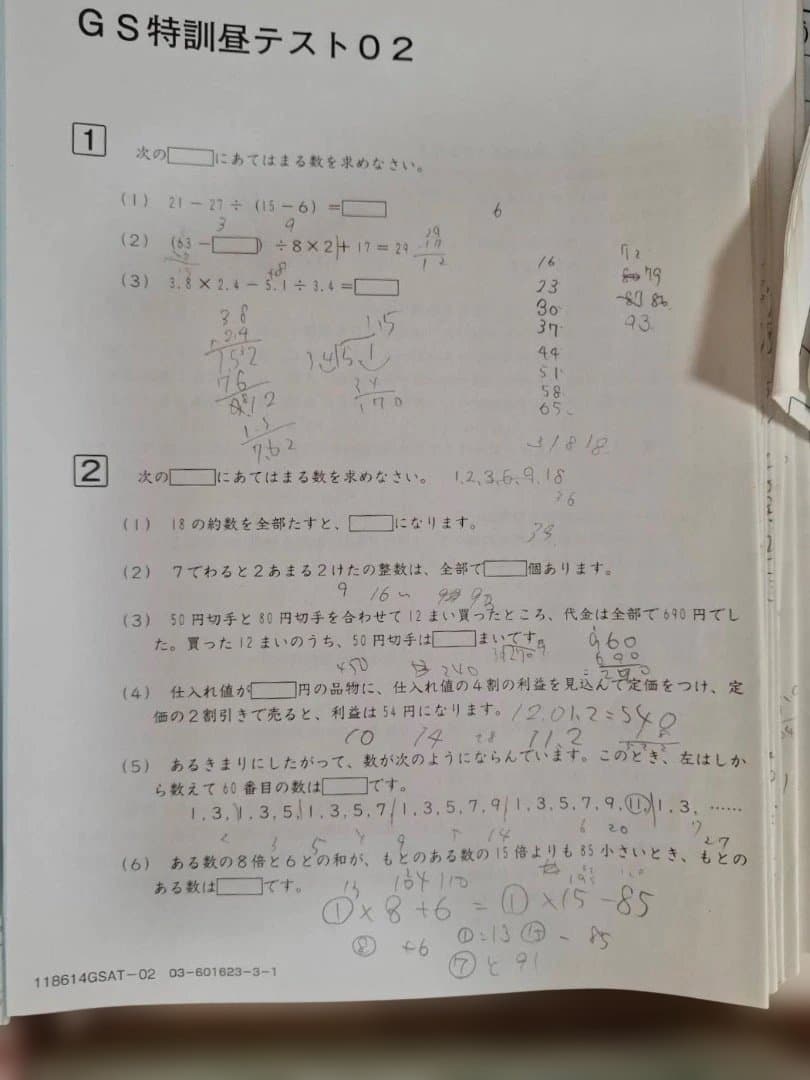 GS特訓昼テスト02
1
次の□にあてはまる数を求めなさい。
(1) 21-27÷(15-6)=□
6
3 9
(2) (63-□)÷8×2+17=29
12
(3) 3.8×2.4-5.1÷3.4=□
16
23
30
37
44
51
58
65
79
93
38
2.4
152
76
1.5
7.62
2
次の□にあてはまる数を求めなさい。
1,2,3,6,9,18
(1) 18の約数を全部たすと、□になります。
(2) 7でわると2あまる2けたの整数は、全部で□個あります。
9 16
(3) 50円切手と80円切手を合わせて12まい買ったところ、代金は全部で690円でし
た。買った12まいのうち、50円切手は□まいです。
960
690
450 240
(4) 仕入れ値が□円の品物に、仕入れ値の4割の利益を見込んで定価をつけ、定
価の2割引きで売ると、利益は54円になります。
10 14 11.2
(5) あるきまりにしたがって、数が次のようにならんでいます。このとき、左はしか
ら数えて60番目の数は□です。
1,3,1,3,5,1,3,5,7,1,3,5,7,9,1,3,5,7,9,11,1,3,……
2 3 5 4 9 5 14 6 20 7 27
(6) ある数の8倍と6との和が、もとのある数の15倍よりも85小さいとき、もとの
ある数は□です。
13 104 110
①×8+6=①×15-85
⑧ +6 ①=13 ⑮ - 85
⑦と91
118614GSAT-02 03-601623-3-1